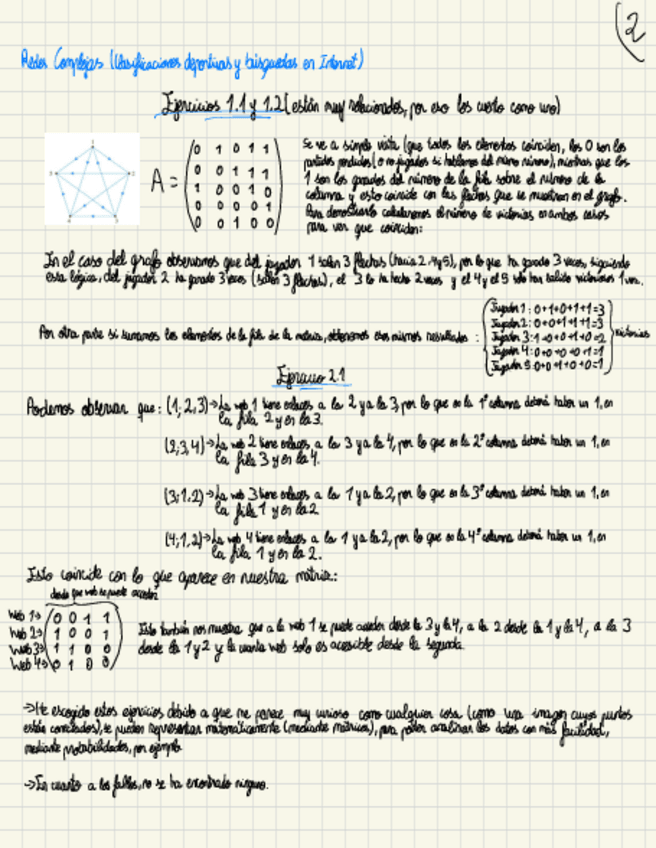 (2
Redes Complejas (Clasificaciones deportivas y búsquedas en Internet)
Ejercicios 1.1 y 1.2 (están muy relacionados, por eso los cuento como uno)
A = (0 1 0 1 1
0 0 1 1 1
1 0 0 1 0
0 0 0 0 1
0 0 1 0 0)
Se ve a simple vista (que todos los elementos coinciden, los 0 son los
partidos perdidos (o no jugados si hablamos del mismo número), mientras que los
1 son los ganados del número de la fila sobre el número de la
columna y esto coincide con las flechas que se muestran en el grafo.
Para demostrarlo calcularemos el número de victorias en ambos casos
para ver que coinciden:
En el caso del grafo observamos que del jugador 1 salen 3 flechas (hacia 2, 4 y 5), por lo que ha ganado 3 veces, siguiendo
esta lógica, del jugador 2 ha ganado 3 veces (salen 3 flechas), el 3 lo ha hecho 2 veces y el 4 y el 5 solo han salido victoriosos 1 vez.
Por otra parte si sumamos los elementos de la fila de la matriz, obtenemos esos mismos resultados:
Jugador 1: 0+1+0+1+1=3
Jugador 2: 0+0+1+1+1=3
Jugador 3: 1+0+0+1+0=2
Jugador 4: 0+0+0+0+1=1
Jugador 5: 0+0+1+0+0=1
victorias
Ejercicio 2.1
Podemos observar que: (1; 2,3) → La web 1 tiene enlaces a la 2 y a la 3, por lo que en la 1ª columna deberá haber un 1, en
la fila 2 y en la 3.
(2; 3,4) → La web 2 tiene enlaces a la 3 y a la 4, por lo que en la 2ª columna deberá haber un 1, en
la fila 3 y en la 4.
(3; 1,2) → La web 3 tiene enlaces a la 1 y a la 2, por lo que en la 3ª columna deberá haber un 1, en
la fila 1 y en la 2
(4; 1,2) → La web 4 tiene enlaces a la 1 y a la 2, por lo que en la 4ª columna deberá haber un 1, en
la fila 1 y en la 2.
Esto coincide con lo que aparece en nuestra matriz:
desde que web se puede acceder
Web 1→ (0 0 1 1
Web 2→ 1 0 0 1
Web 3→ 1 1 0 0
Web 4→ 0 1 0 0)
Esto también nos muestra que a la web 1 se puede acceder desde la 3 y la 4, a la 2 desde la 1 y la 4, a la 3
desde la 1 y 2 y la cuarta web solo es accesible desde la segunda.
→ He escogido estos ejercicios debido a que me parece muy curioso como cualquier cosa (como una imagen cuyos puntos
están conectados), se pueden representar matemáticamente (mediante matrices), para poder analizar los datos con más facilidad,
mediante probabilidades, por ejemplo
→ En cuanto a los fallos, no se ha encontrado ninguno.